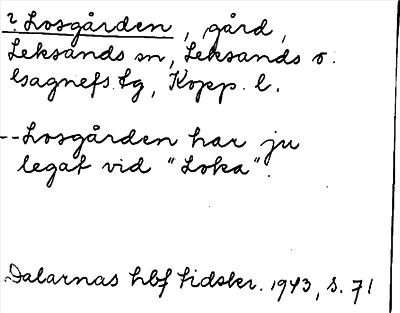 ? Losgården, gård,
Leksands sn, Leksands o.
Gagnefs tg, Kopp. l.
--Losgården har ju
legat vid "Loka".
Dalarnas hbf tidskr. 1943, s. 71